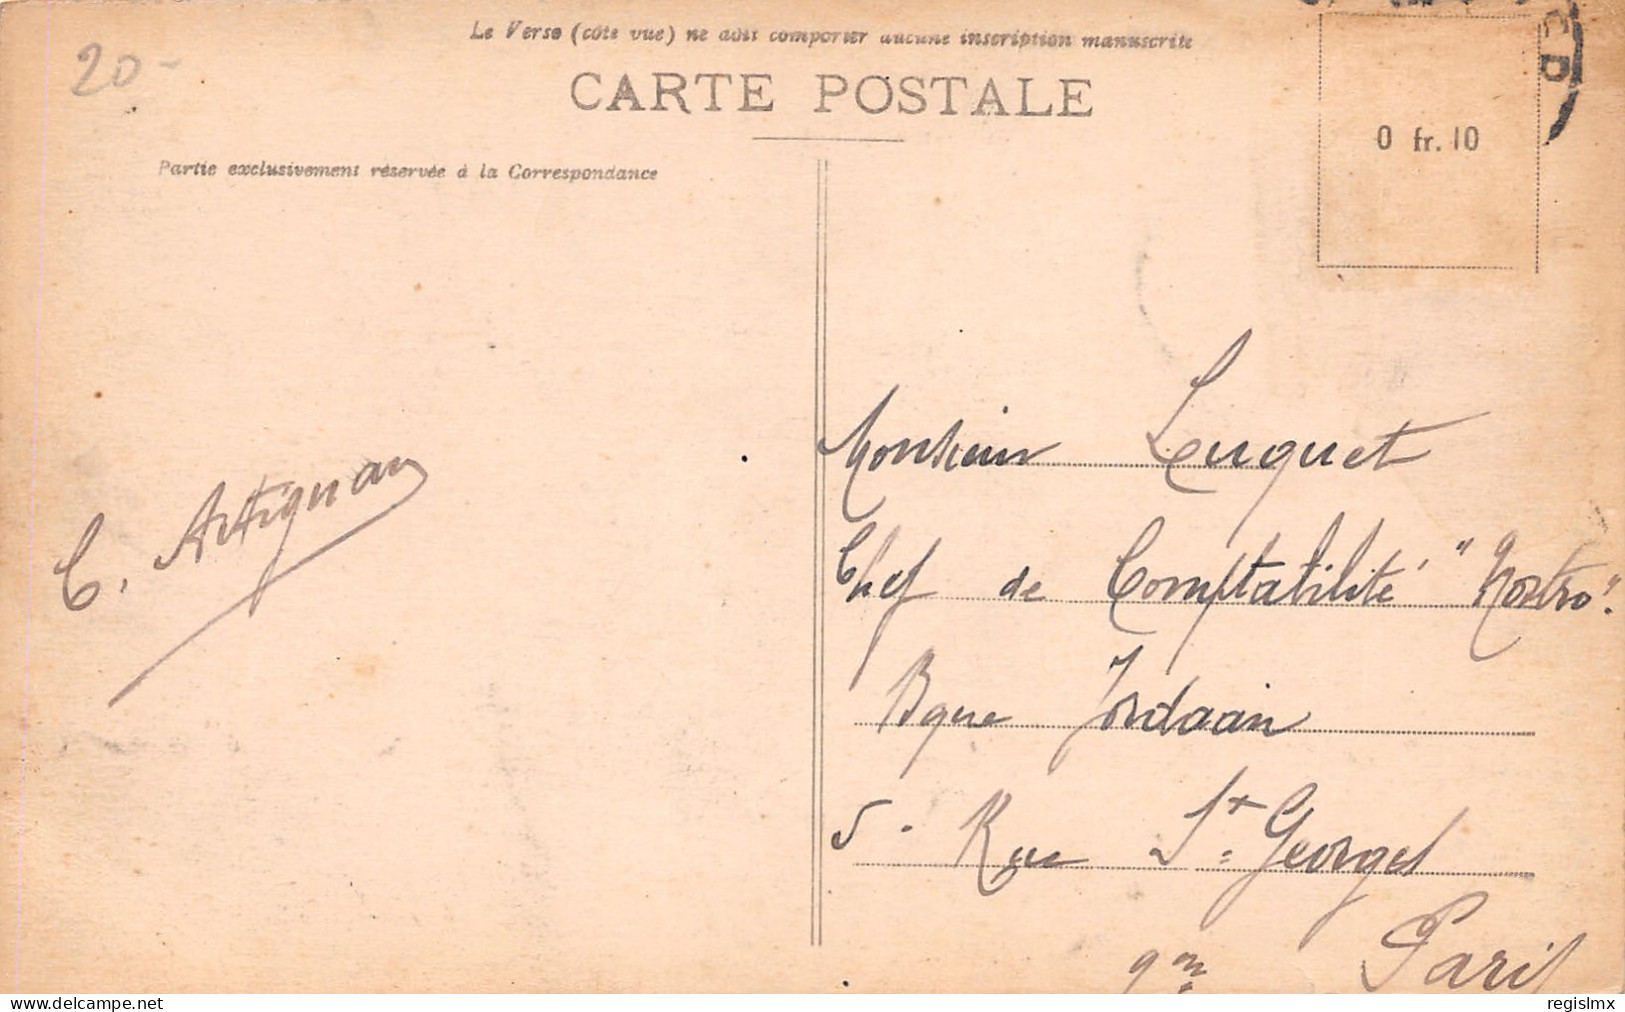 Le Verso (côté vue) ne doit comporter aucune inscription manuscrite
20-
CARTE POSTALE
0 fr. 10
Partie exclusivement réservée à la Correspondance
C. Artignan
Monsieur Luquet
Chef de Comptabilité "Nostro".
Bque Jordaan
5. Rue St Georges
9me Paris
regislmx
delcampe.net